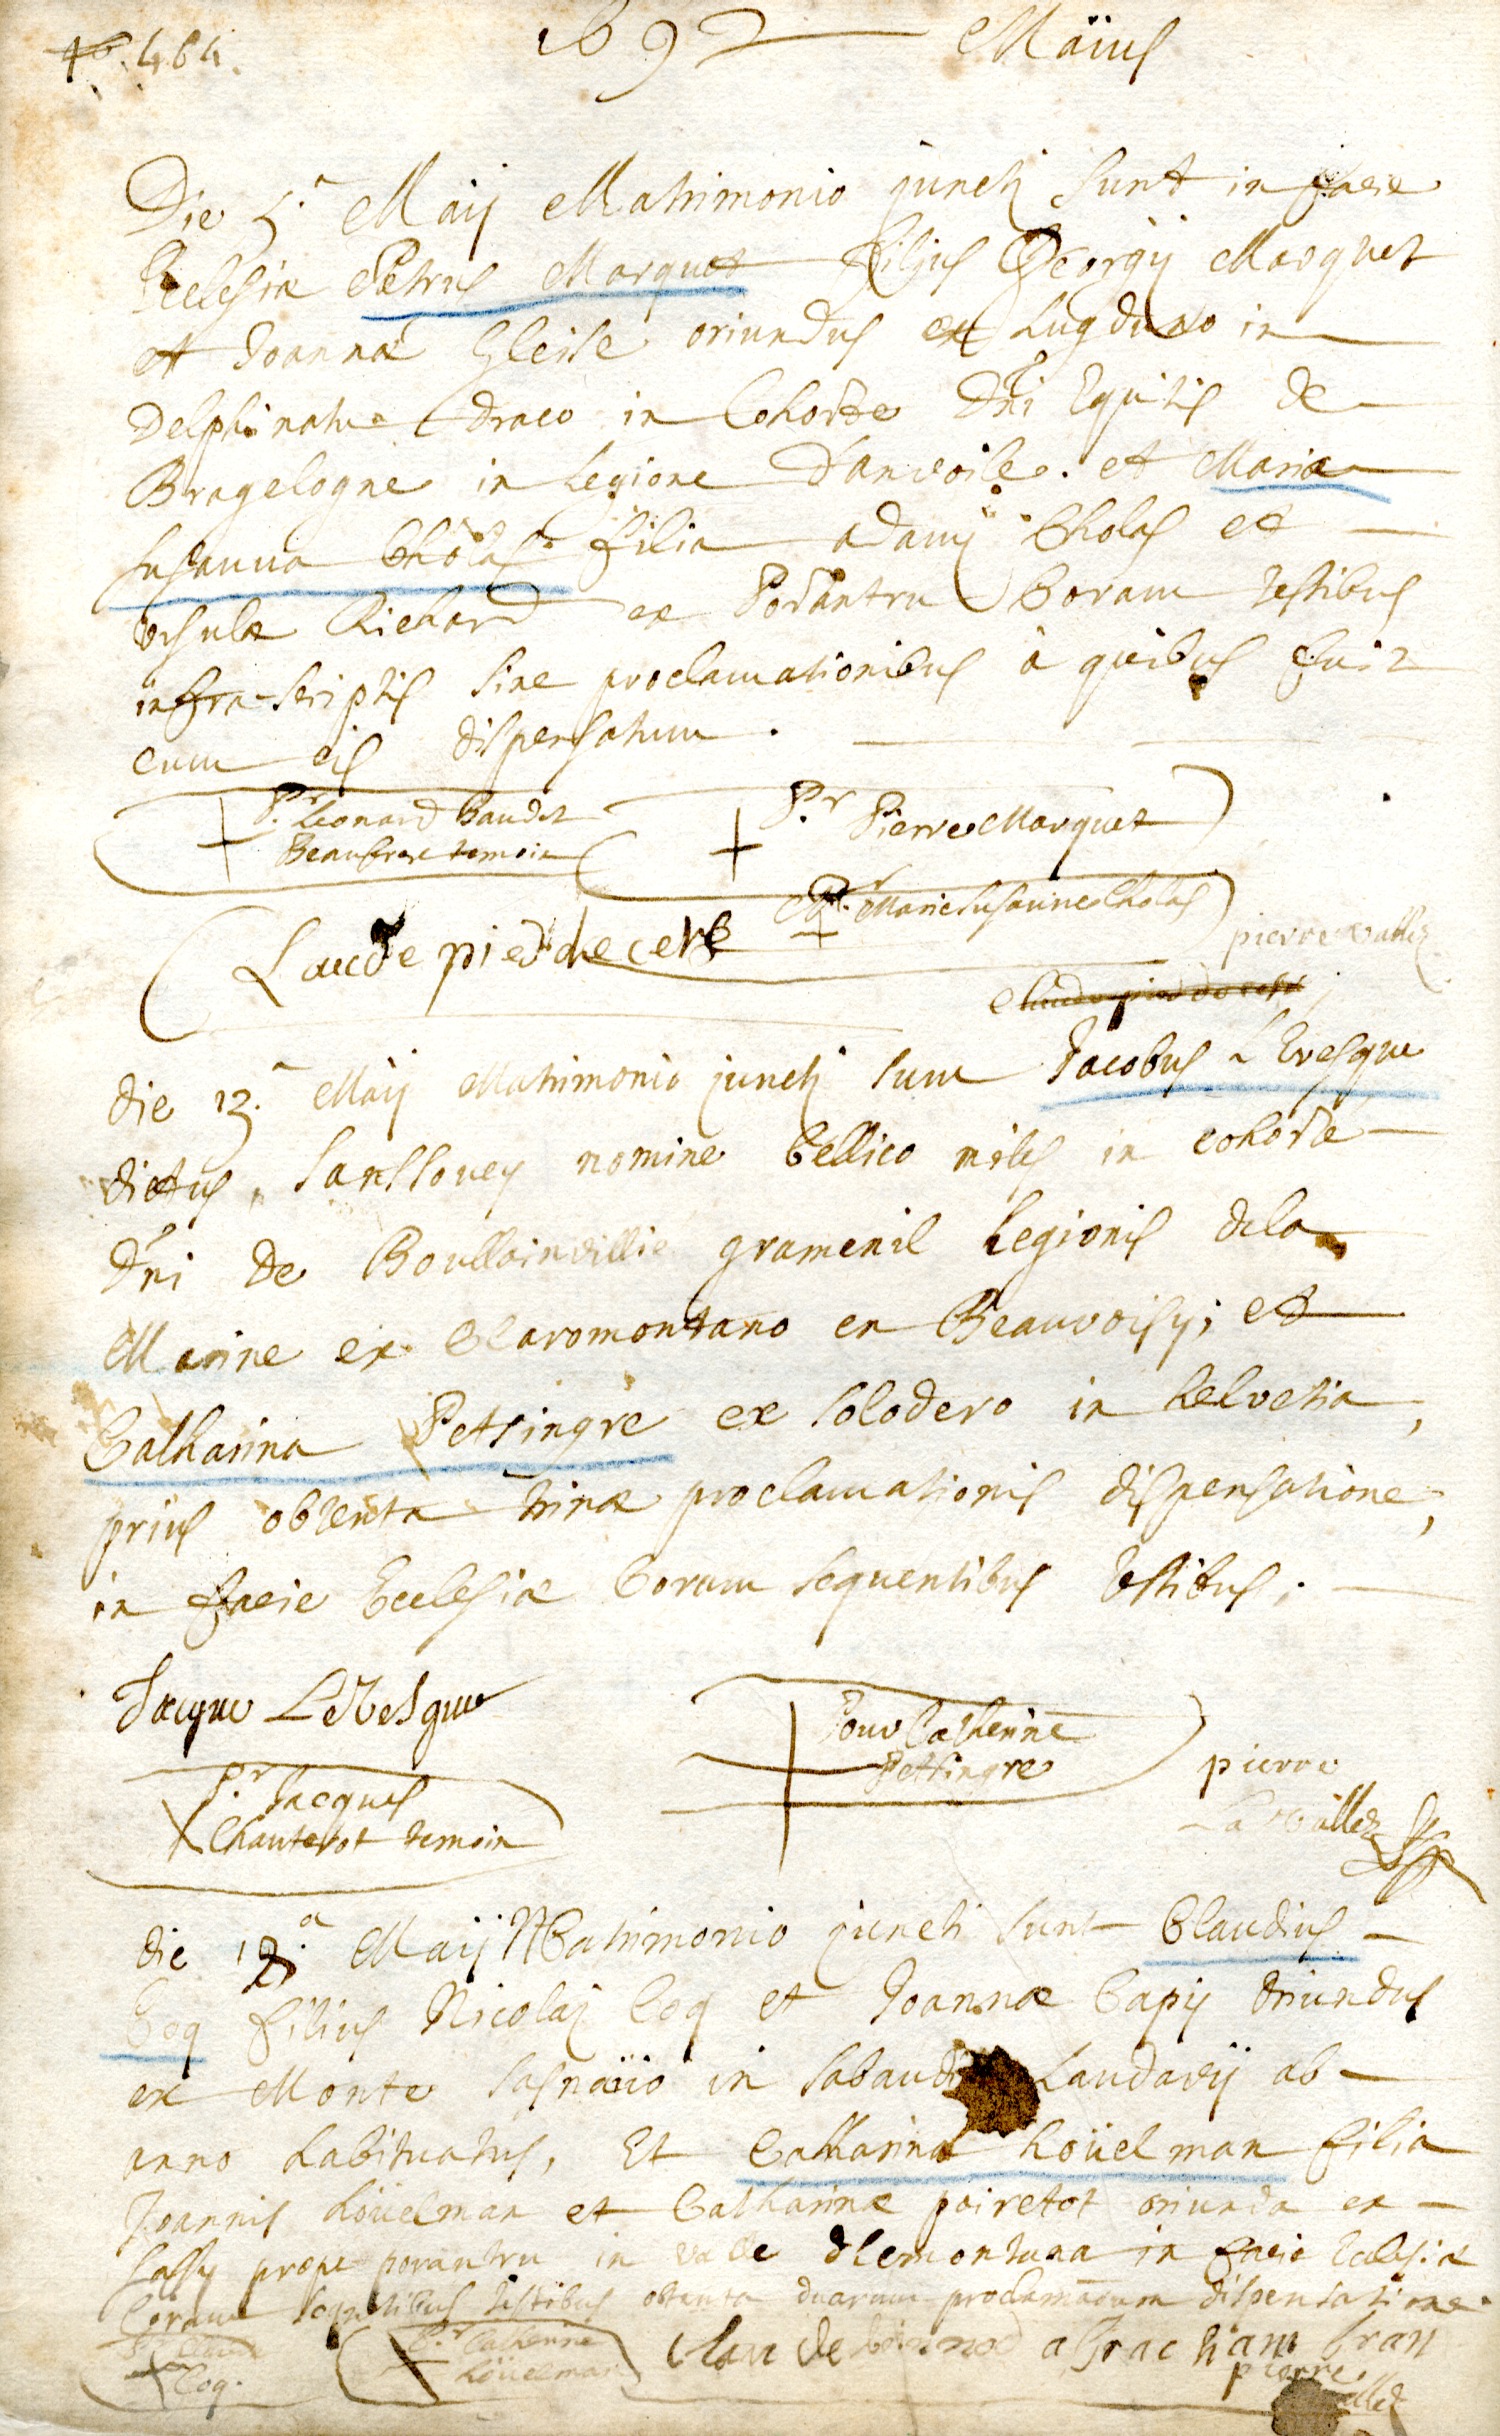 464.
1692 Maïus
Die 5.a Maij Matrimonio juncti sunt in facie
Ecclesiæ Petrus Marquet filius Georgij Marquet
et Joannæ Gleise oriundus ex Lugduno in
Delphinatu draco in Cohorte Dni Equitis de
Bragelogne in Legione Danvoile. et Maria
Susanna Cholas filia adami Cholas et
Ursulæ Richard ex Porantru Coram testibus
infra-scriptis sine proclamationibus à quibus fuit
cum eis dispensatum.
P.r Leonard Baudet
Beaufrere temoin
P.r Pierre Marquet
P.r Marie Susanne Cholas
Laude pied de cerf
pierre Vallez
Claude pied de cerf
die 13.a Maij Matrimonio juncti sunt Jacobus L'Evesque
dictus Sanssoucy nomine bellico miles in cohorte
Dni de Boullainvillie gramenil Legionis dela
Marine ex Claromontano en Beauvoisy; et
Catharina Petsingre ex solodero in helvetia,
prius obtenta trinæ proclamationis dispensatione,
in facie Ecclesiæ Coram sequentibus testibus.
Jacque LeVesque
Pour Catherine
Petsingre
P.r Jacques
Chanterot temoin
pierre
La Vallez
die Maij Matrimonio juncti sunt Claudius
Coq filius Nicolaj Coq et Joannæ Capij oriundus
ex Monte in Landavij ab
anno habituatus, Et Catharina höuelman filia
Joannis höuelman et Catharinæ poiretot oriunda ex
prope porantru in valle dlemontana in facie Ecclesiæ
Coram testibus obtenta duarum dispensatione.
Coq.
P.r Catherine
höuelman
Claude
abracham bran
pierre